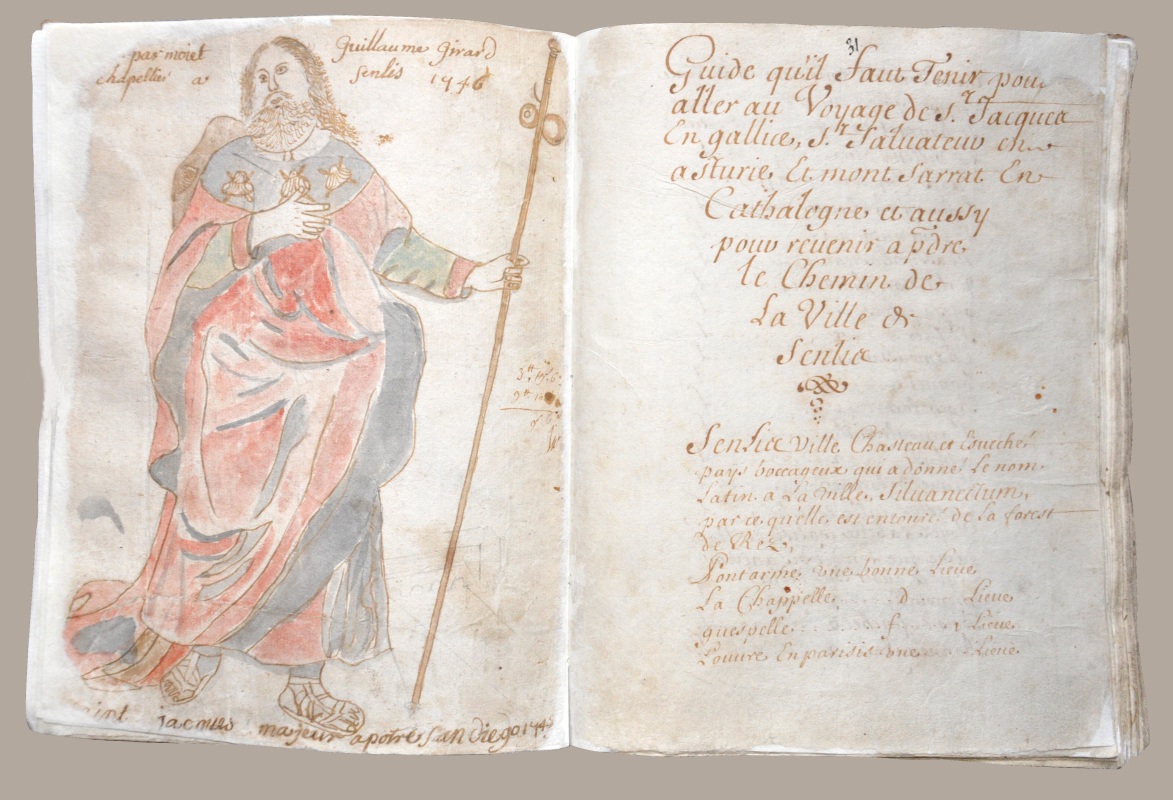 par moiet Guillaume Girard
chapellié a Senlis 1746
saint jacques majeur apotre San Diego 174
31
Guide qu'il faut Tenir pour
aller au Voyage de st. Jacques
En gallice, st. Saluateur en
asturie Et mont sarrat En
Cathalogne et aussy
pour reuenir a pdre
le Chemin de
La Ville de
Senlis
Senlis ville, Chasteau et Euesché
pays boccageux qui a donné le nom
Latin a La ville, siluanectum,
par ce qu'elle est entouré de la forest
de Rez,
Pontarmé une bonne Lieue
La Chappelle Lieue
guespelle Lieue
Louure En parisis une Lieue